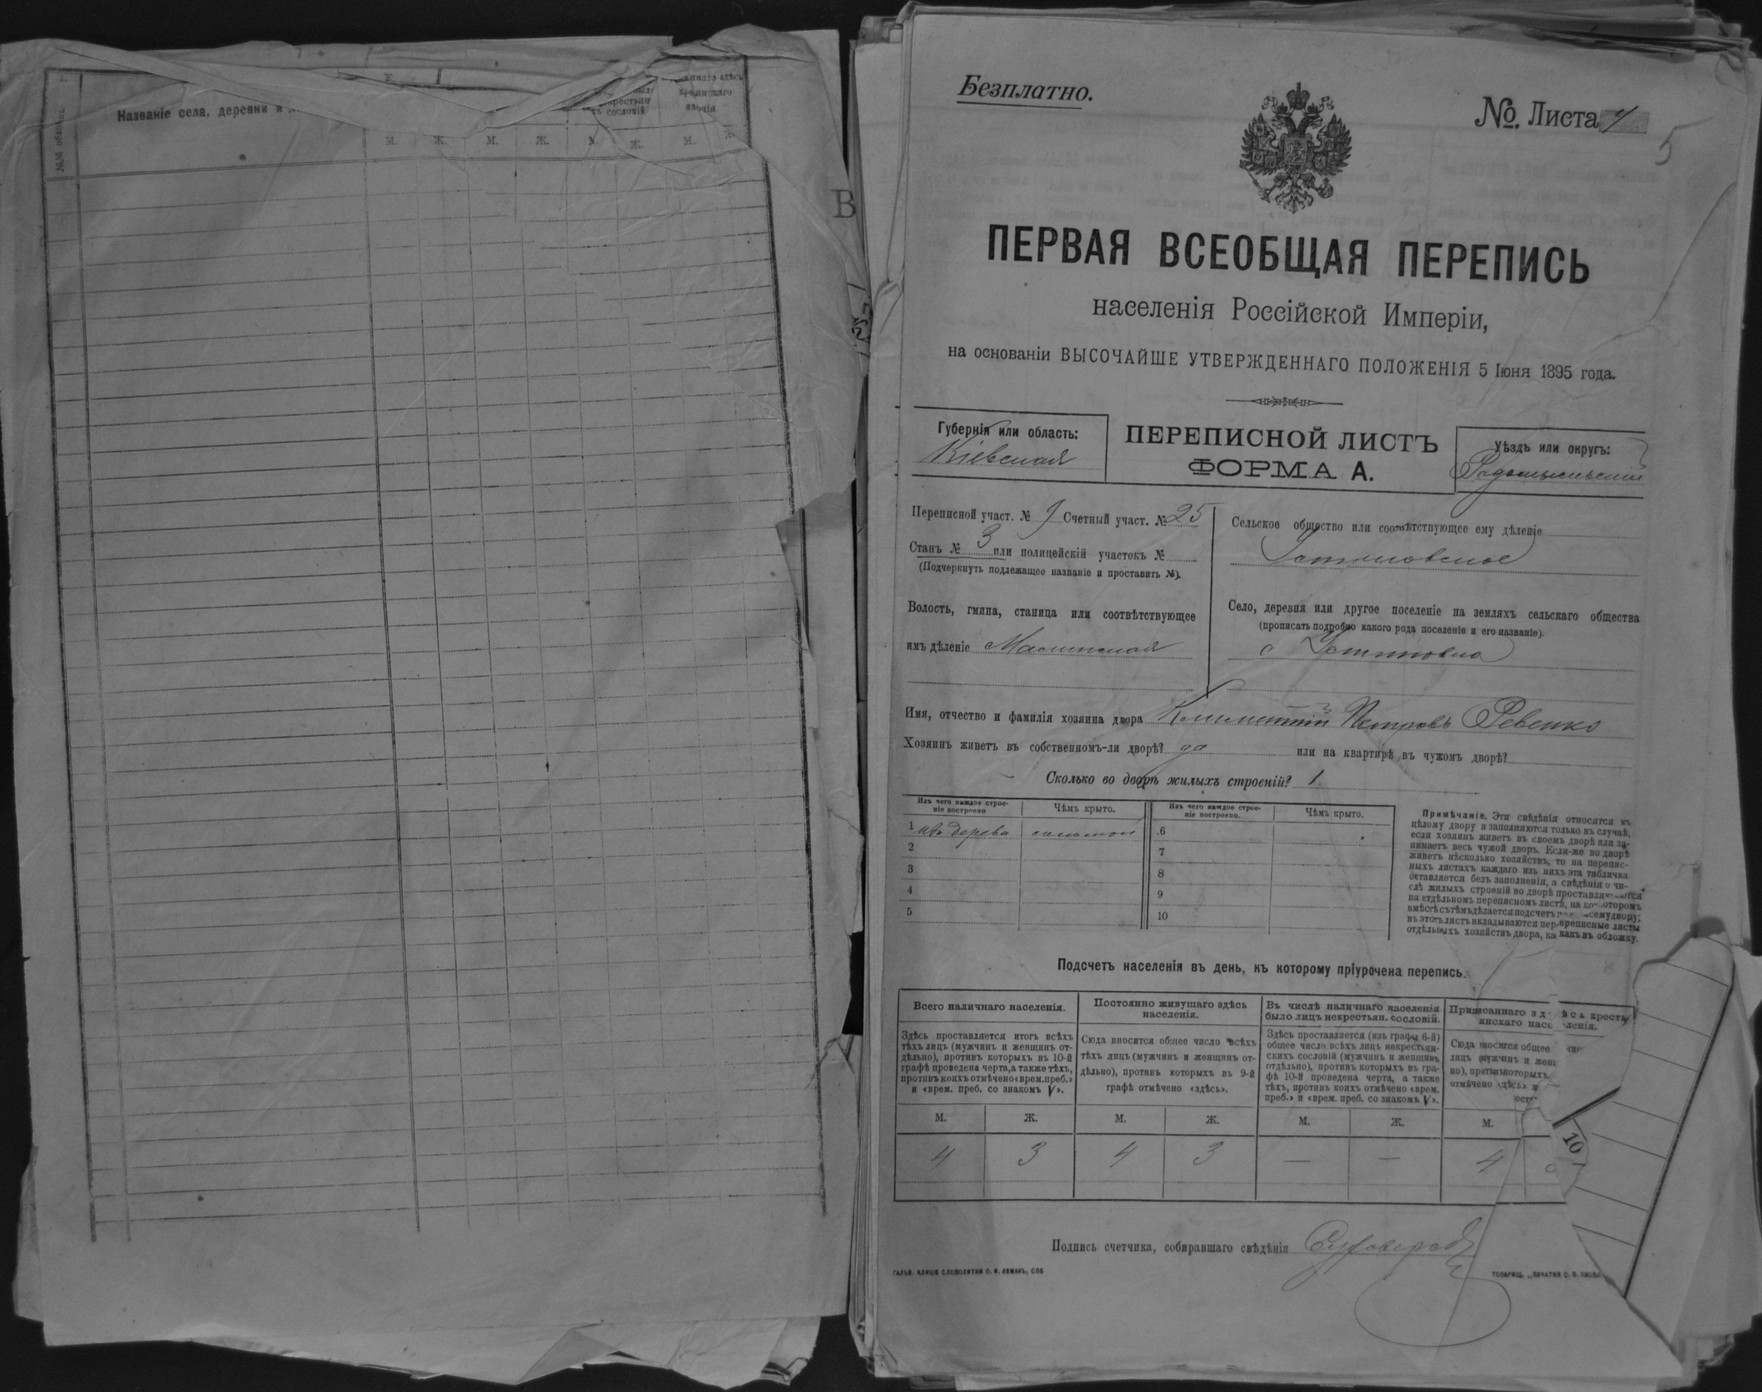 Названіе села, деревни и
М. Ж. М. Ж. М. Ж. М. Ж.
Безплатно.
№. Листа 4
5
ПЕРВАЯ ВСЕОБЩАЯ ПЕРЕПИСЬ
населенія Россійской Имперіи,
на основаніи ВЫСОЧАЙШЕ УТВЕРЖДЕННАГО ПОЛОЖЕНІЯ 5 Іюня 1895 года.
Губернія или область:
Кіевская
ПЕРЕПИСНОЙ ЛИСТЪ
ФОРМА А.
Уѣздъ или округъ:
Радомысльскій
Переписной участ. № 9 Счетный участ. № 25
Станъ № 3 или полицейскій участокъ №
(Подчеркнуть подлежащее названіе и проставить №).
Волость, гмина, станица или соотвѣтствующее
имъ дѣленіе Малинская
Сельское общество или соотвѣтствующее ему дѣленіе
Устиновское
Село, деревня или другое поселеніе на земляхъ сельскаго общества
(прописать подробно какого рода поселеніе и его названіе).
с Устиновка
Имя, отчество и фамилія хозяина двора Климентій Петровъ Ревенко
Хозяинъ живетъ въ собственномъ-ли дворѣ? да или на квартирѣ въ чужомъ дворѣ?
Сколько во дворѣ жилыхъ строеній? 1
Изъ чего каждое строе-
ніе построено
Чѣмъ крыто.
Изъ чего каждое строе-
ніе построено.
Чѣмъ крыто.
1 изъ дерева соломой
2
3
4
5
6
7
8
9
10
Примѣчаніе. Эти свѣдѣнія относятся къ
цѣлому двору и заполняются только въ случаѣ,
если хозяинъ живетъ въ своемъ дворѣ или за-
нимаетъ весь чужой дворъ. Если-же во дворѣ
живетъ нѣсколько хозяйствъ, то на перепис-
ныхъ листахъ каждаго изъ нихъ эта табличка
оставляется безъ заполненія, а свѣдѣнія о чи-
слѣ жилыхъ строеній во дворѣ проставляются
на отдѣльномъ переписномъ листѣ, на которомъ
вмѣстѣ съ тѣмъ дѣлается подсчетъ по всему двору;
въ этотъ листъ вкладываются переписные листы
отдѣльныхъ хозяйствъ двора, какъ въ обложку.
Подсчетъ населенія въ день, къ которому пріурочена перепись.
Всего наличнаго населенія.
Здѣсь проставляется итогъ всѣхъ
тѣхъ лицъ (мужчинъ и женщинъ от-
дѣльно), противъ которыхъ въ 10-й
графѣ проведена черта, а также тѣхъ,
противъ коихъ отмѣчено «врем. преб.»
и «врем. преб. со знакомъ V».
Постоянно живущаго здѣсь
населенія.
Сюда вносится общее число всѣхъ
тѣхъ лицъ (мужчинъ и женщинъ от-
дѣльно), противъ которыхъ въ 9-й
графѣ отмѣчено «здѣсь».
Въ числѣ наличнаго населенія
было лицъ некрестьян. сословій.
Здѣсь проставляется (изъ графы 6-й)
общее число всѣхъ лицъ некрестьян-
скихъ сословій (мужчинъ и женщинъ
отдѣльно), противъ которыхъ въ гра-
фѣ 10-й проведена черта, а также
тѣхъ, противъ коихъ отмѣчено «врем.
преб.» и «врем. преб. со знакомъ V».
Приписаннаго здѣсь кресть-
янскаго населенія.
Сюда вносится общее
лицъ мужчинъ и жен
но), противъ которыхъ
отмѣчено «здѣсь» и
М. Ж. М. Ж. М. Ж. М.
4 3 4 3 — — 4
10
Подпись счетчика, собиравшаго свѣдѣнія